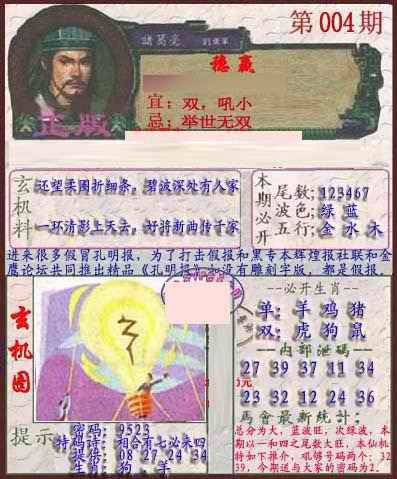 第004期
諸葛亮
正版
稳赢
宜：双，吼小
忌：举世无双
玄机料
还望柔圃折细条，碧波深处有人家
一环清影上天去，好将新曲传于家
本期必开
尾数：123467
波色：绿 蓝
五行：金 水 木
进来很多假冒孔明报，为了打击假报和黑专本辉煌报社联和金
鹰论坛共同推出精品《孔明报》都没有雕刻字版，都是假报。
玄机图
--必开生肖--
单：羊 鸡 猪
双：虎 狗 鼠
--内部泄码--
27 39 37 11 34
23 32 12 24 36
马會最新统计：
总分为大，蓝波旺，次绿波，本
期以一和四之尾数大旺，本仙机
特如下推介，吼够号码两个：32
39，今期送与大家的密码为2.
提示
密码：9523
特码诗：相合有七必来四
提供：08 27 24 34
生肖：狗，羊